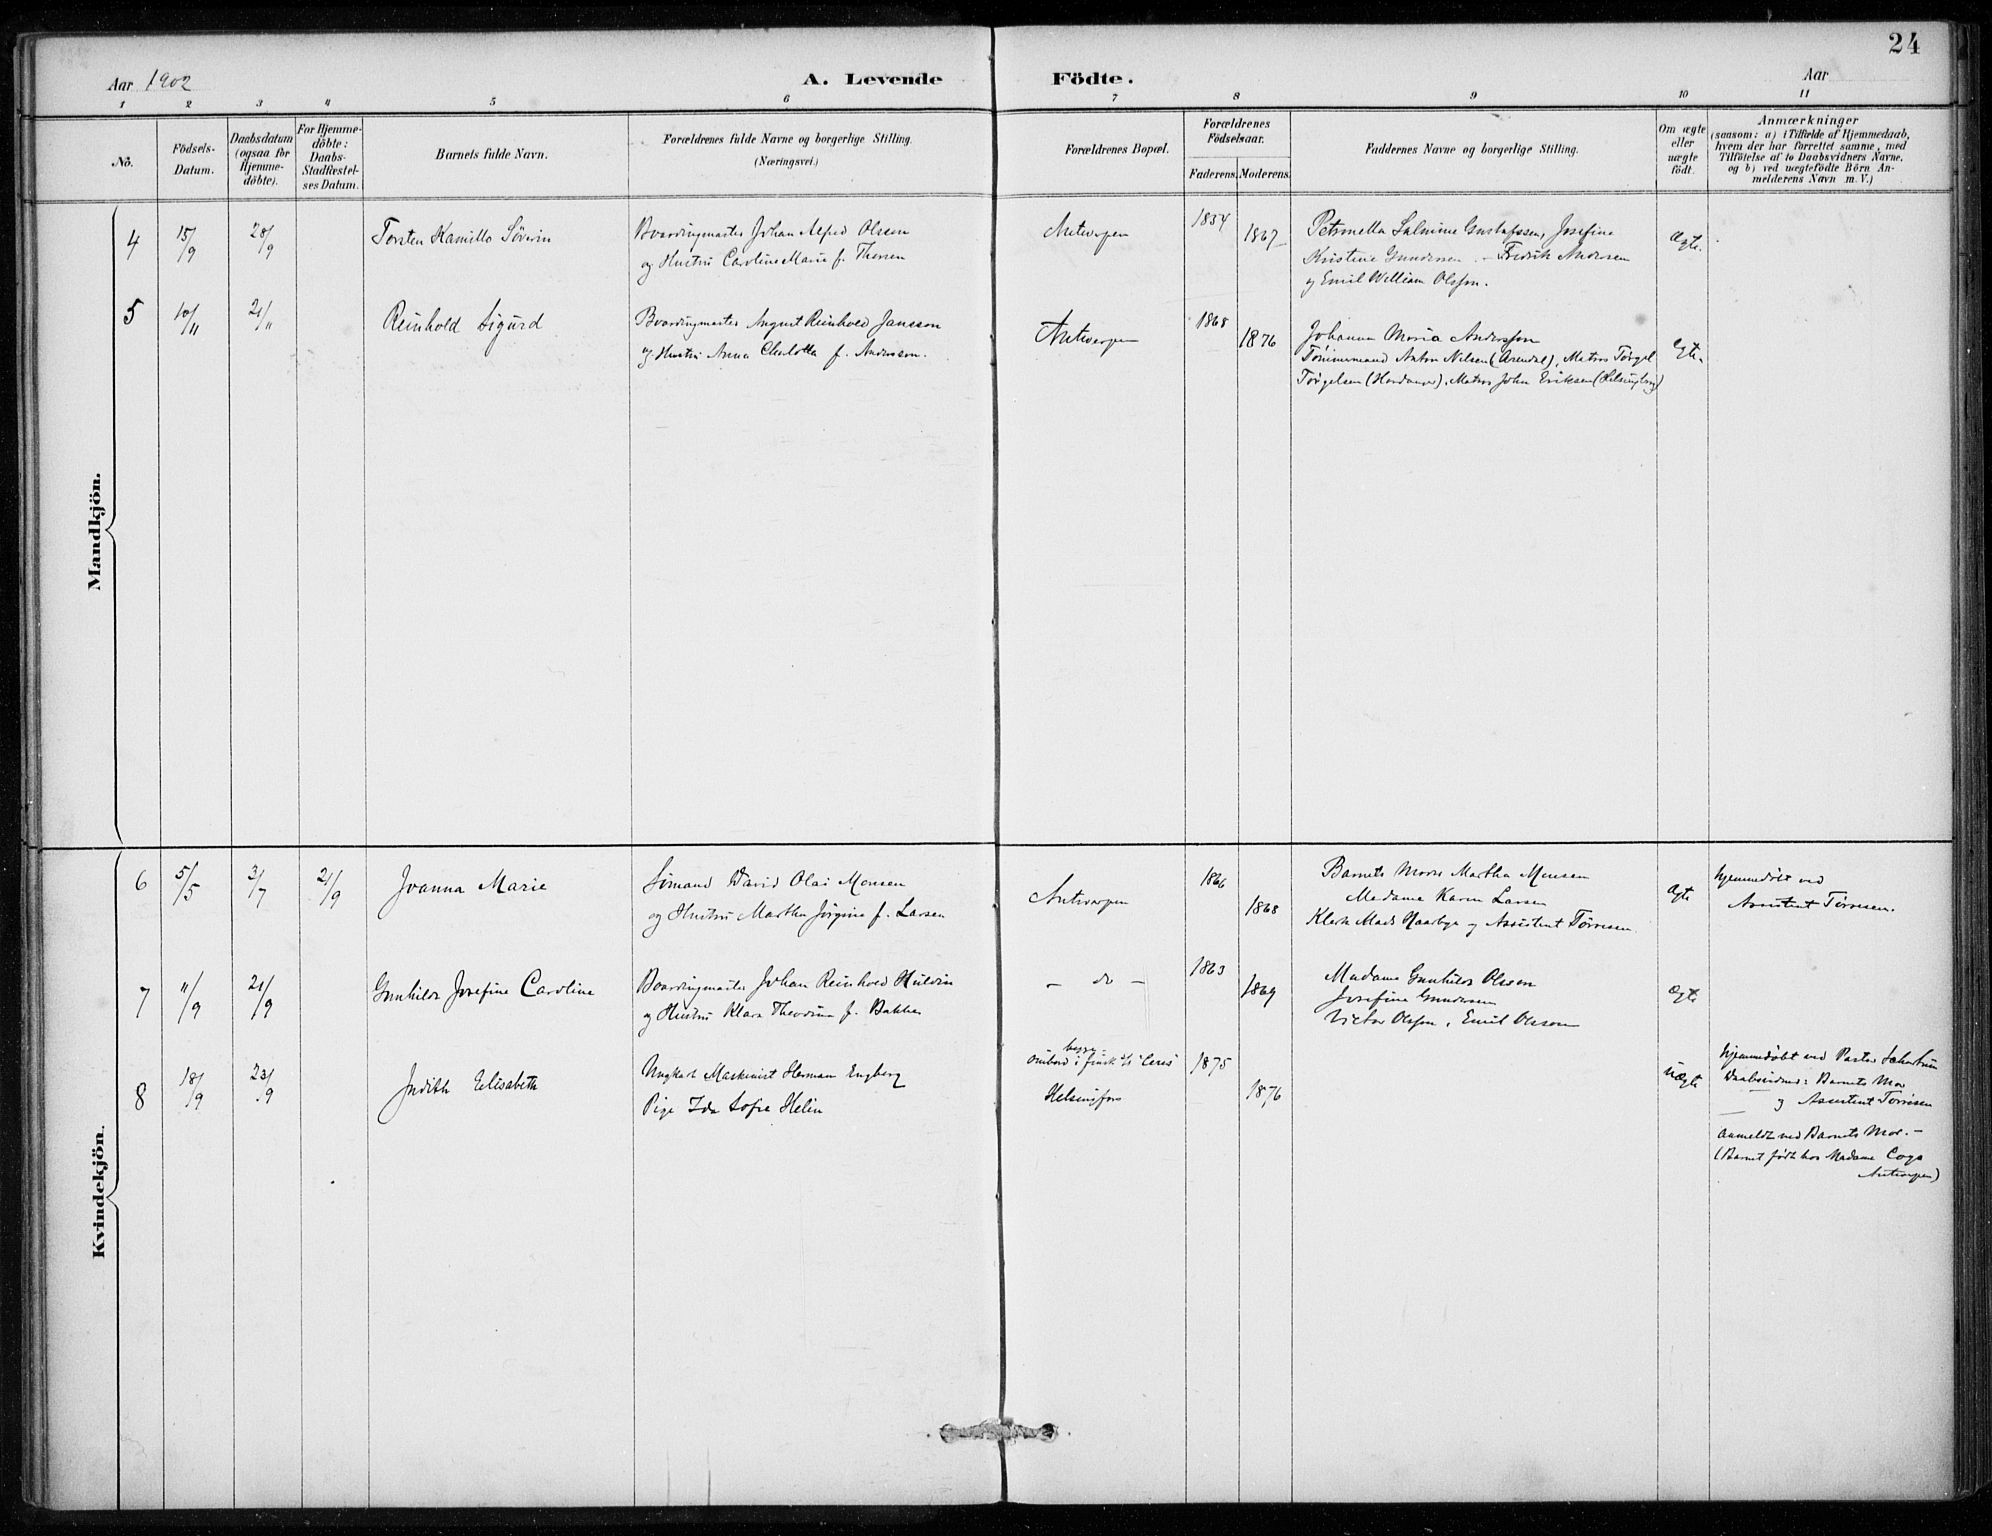 24
Aar 1902
A. Levende Födte.
Aar
1 2 3 4 5 6 7 8 9 10 11
No.
Födsels-
Datum.
Daabsdatum
(ogsaa for
Hjemme-
döbte).
For Hjemme-
döbte:
Daabs-
Stadfestel-
ses Datum.
Barnets fulde Navn.
Forældrenes fulde Navne og borgerlige Stilling.
(Næringsvei.)
Forældrenes Bopæl.
Forældrenes
Födselsaar.
Faderens. Moderens.
Faddernes Navne og borgerlige Stilling.
Om ægte
eller
uægte
födt.
Anmærkninger
(saasom: a) i Tilfælde af Hjemmedaab,
hvem der har forrettet samme, med
Tilföielse af to Daabsvidners Navne,
og b) ved uægtefödte Börn An-
melderens Navn m. V.)
Mandkjön.
4 15/9 28/9 Torsten Kamillo Söverin
Boardingmaster Johan Alfred Olsson
og Hustru Caroline Marie f. Thorsen
Antwerpen 1854 1867
Petronella Salmine Gustafssen, Josefine
Kristine Gundersen - Fredrik Andersen
og Emil William Olsson.
Ægte.
5 10/11 21/11 Reinhold Sigurd
Boardingmaster August Reinhold Jansson
og Hustru Anna Charlotta f. Andersson.
Antwerpen 1868 1876
Johanna Maria Andersson
Tømmermand Anton Nilsen (Arendal), Matros Törgel
Törgelsen (Hardanger), Matros John Eriksen (Helsingborg)
Ægte.
Kvindekjön.
6 5/5 3/7 21/9 Joanna Marie
Sömand David Olai Monsen
og Hustru Martha Jörgine f. Larsen
Antwerpen 1866 1868
Barnets Moder Martha Monsen
Madame Karen Larsen
Klerk Mads Haarbye og Assistent Törresen.
Ægte
hjemmedöbt ved
Assistent Törresen.
7 11/9 21/9 Gunhilda Josefine Caroline
Boardingmaster Johan Reinhold Huldin
og Hustru Klara Theodora f. Bakken
- do - 1863 1869
Madame Gunhilda Olsson
Josefine Gundersen
Victor Olsson, Emil Olsson
Ægte
8 18/9 23/9 Judith Elisabeth
Ungkarl Maskinist Herman Engberg
Pige Ida Sofie Helin
begge
ombord i finsk s/s "Ceres"
Helsingfors
1875 1876
uægte
hjemmedöbt ved Pastor
Daabsvidner: Barnets Mor
og Assistent Törresen
anmeldt ved Barnets Mor. -
(Barnet födt hos Madame Cogo
Antwerpen)